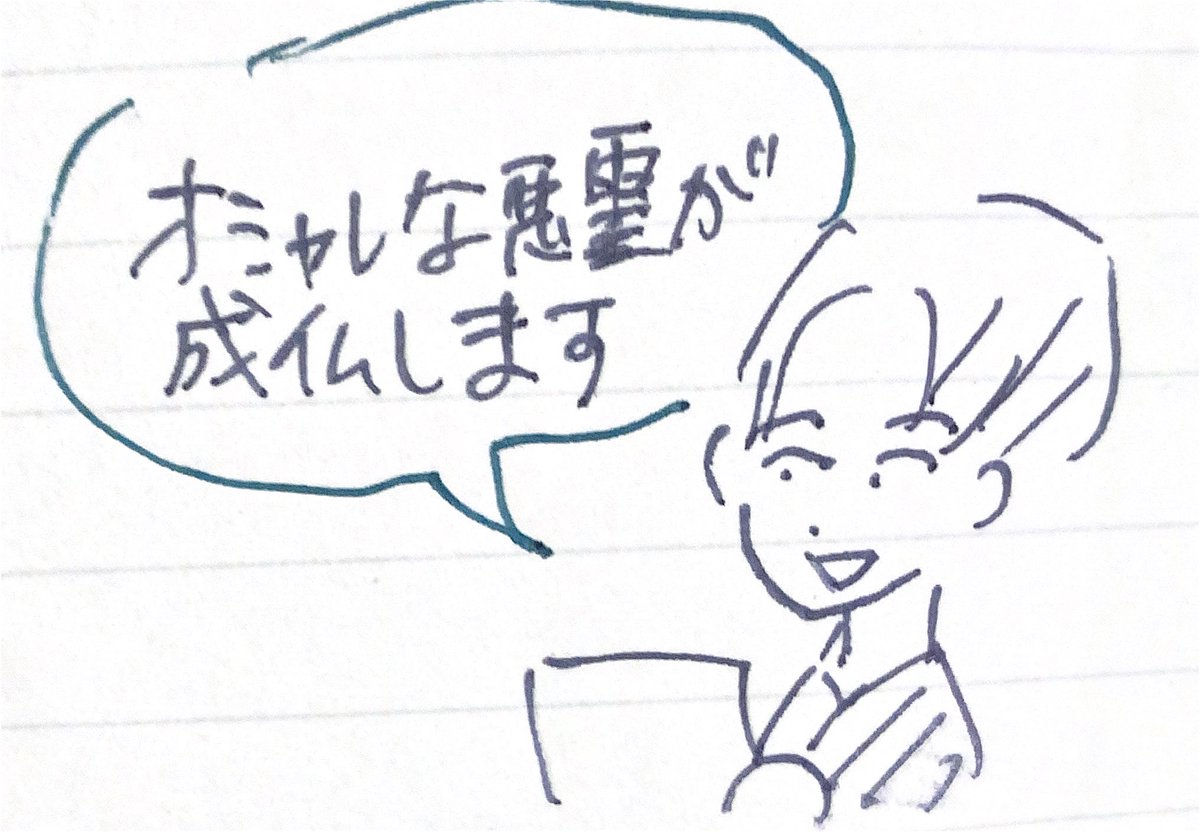 オミャレな悪霊が
成仏します